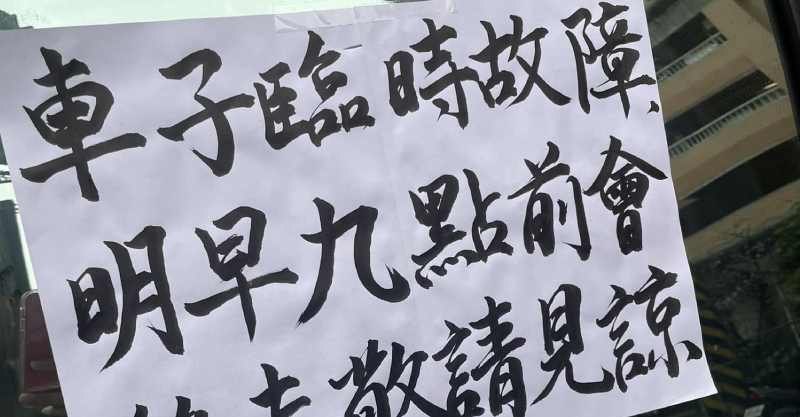 車子臨時故障、
明早九點前會
敬請見諒